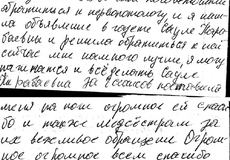 обратиться к невропатологу и я наш-
ла объявление в газете Сауле Кара-
баевны и решила обратиться к ней
сейчас мне намного лучше, я могу
нагинатся и всё делать Сауле
Карабаевна за
меня на ноги огромное ей спаси-
бо и также медсёстрам за
их вежливое обращение Огром-
ное огромное всем спасибо